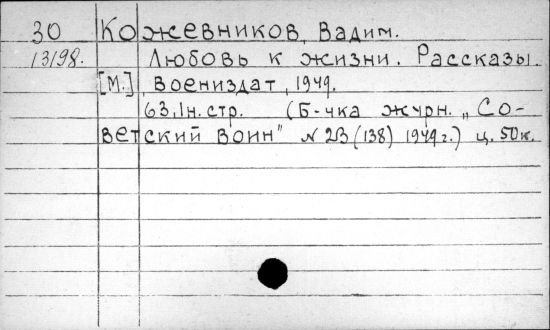 30 Кожевников, Вадим.
13198. Любовь к жизни. Рассказы.
[М.], Воениздат, 1949.
63,1н.стр. (Б-чка журн. „Со-
ветский воин" N 23(138) 1949г.) ц. 50к.